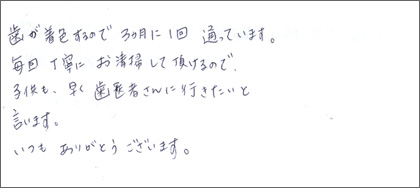 歯が着色するので 3ヶ月に1回 通っています。
毎回 丁寧に お清掃して頂けるので、
子供も、早く 歯医者さんに行きたいと
言います。
いつも ありがとう ございます。